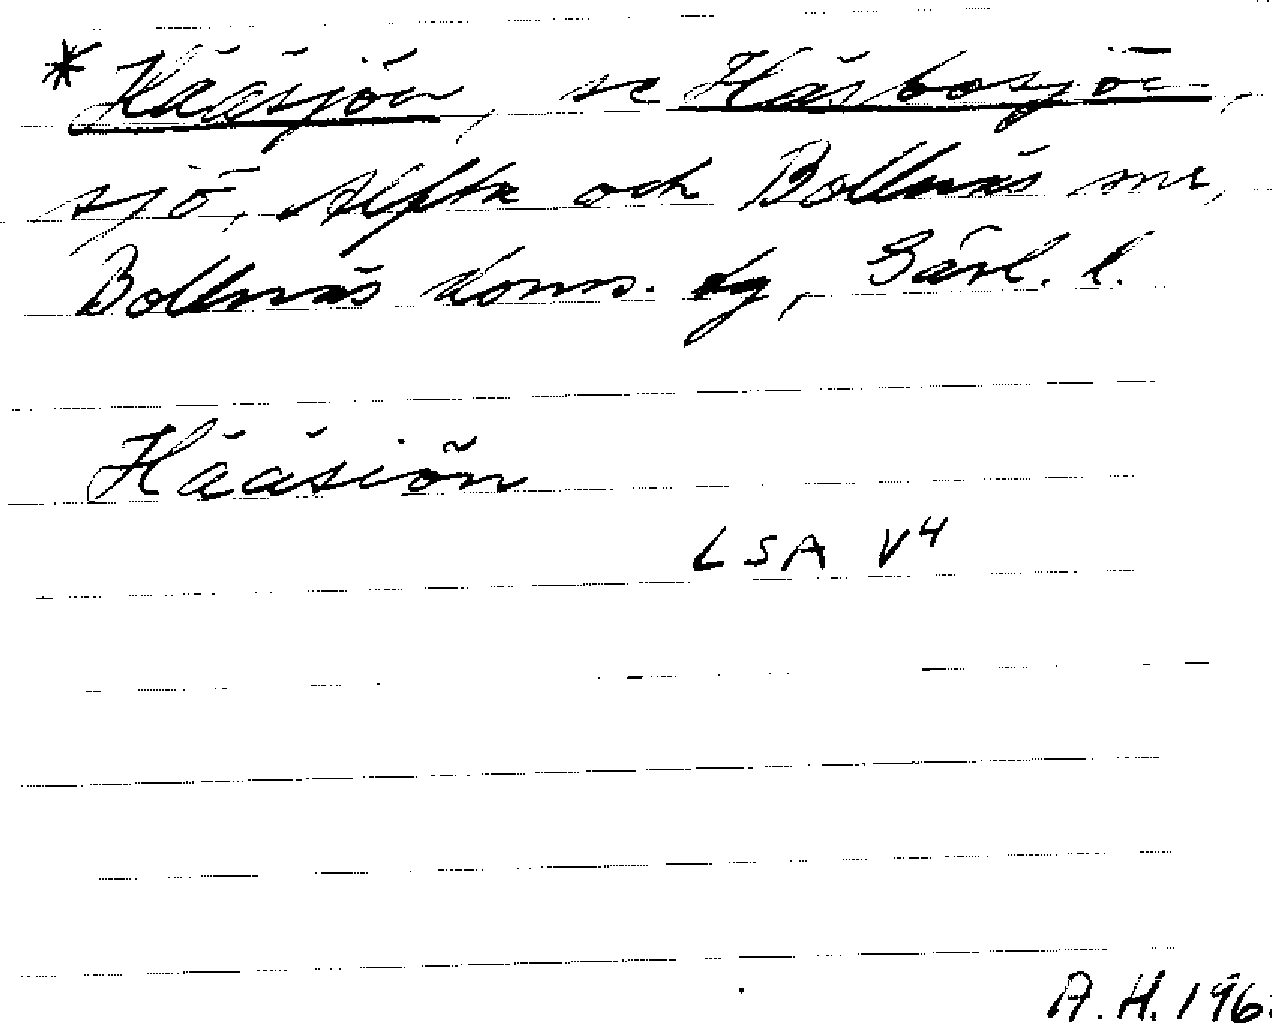 * Hääsjön, se Häsbosjön,
sjö, Alfta och Bollnäs snr,
Bollnäs doms. dg, Gävl. l.
Hääsiön
LSA V4
A. H. 196